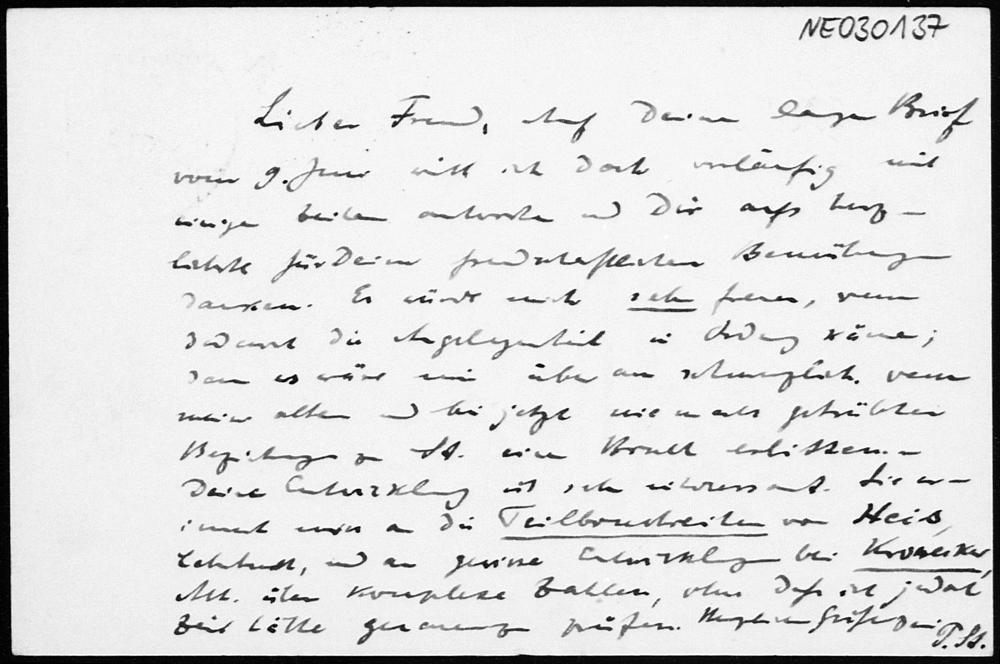 NE030137
Lieber Freund, Auf Deinen langen Brief
vom 9. Juni will ich doch vorläufig mit
einigen Zeilen antworten und Dir aufs herz-
lichste für Deine freundschaftlichen Bemühungen
danken. Es würde mich sehr freuen, wenn
dadurch die Angelegenheit in Ordnung käme;
denn es wäre mir überaus schmerzlich, wenn
meine alten und bis jetzt niemals getrübten
Beziehungen zu St. einen Bruch erlitten.
Deine Entwicklung ist sehr interessant. Sie er-
innert mich an die Teilbruchreihen von Heis,
Lehrbuch, und an gewisse Entwicklungen bei Kronecker,
Abh. über komplexe Zahlen, ohne dass ich jedoch
Zeit hätte genauer zu prüfen. Herzliche Grüße Dein
P. St.